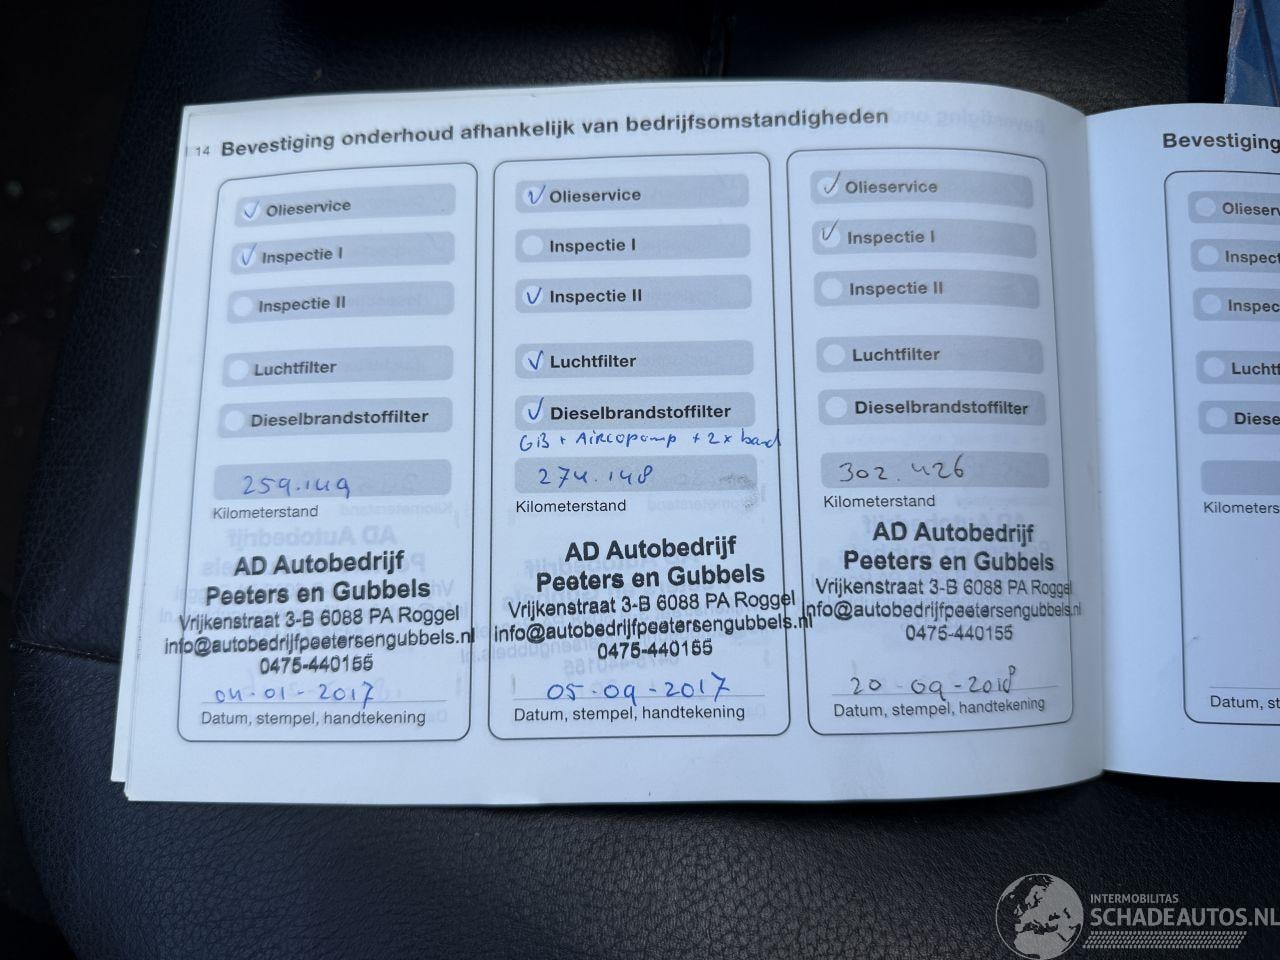 14 Bevestiging onderhoud afhankelijk van bedrijfsomstandigheden
✓ Olieservice
✓ Inspectie I
Inspectie II
Luchtfilter
Dieselbrandstoffilter
259.149
Kilometerstand
AD Autobedrijf
Peeters en Gubbels
Vrijkenstraat 3-B 6088 PA Roggel
info@autobedrijfpeetersengubbels.nl
0475-440155
04-01-2017
Datum, stempel, handtekening
✓ Olieservice
Inspectie I
✓ Inspectie II
✓ Luchtfilter
✓ Dieselbrandstoffilter
GB + Aircopomp + 2x band
274.148
Kilometerstand
AD Autobedrijf
Peeters en Gubbels
Vrijkenstraat 3-B 6088 PA Roggel
info@autobedrijfpeetersengubbels.nl
0475-440155
05-09-2017
Datum, stempel, handtekening
✓ Olieservice
✓ Inspectie I
Inspectie II
Luchtfilter
Dieselbrandstoffilter
302.426
Kilometerstand
AD Autobedrijf
Peeters en Gubbels
Vrijkenstraat 3-B 6088 PA Roggel
info@autobedrijfpeetersengubbels.nl
0475-440155
20-09-2018
Datum, stempel, handtekening
Bevestiging
Olieserv
Inspect
Inspec
Luchtf
Diese
Kilometers
Datum, st
INTERMOBILITAS
SCHADEAUTOS.NL